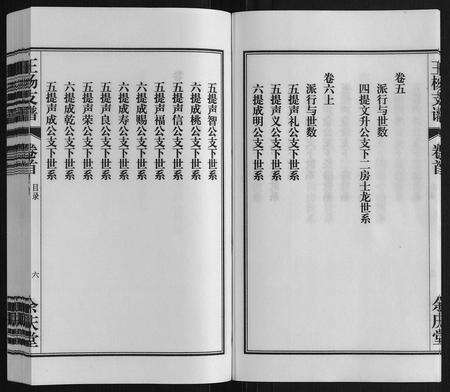 王杨支谱
卷首
余庆堂
卷五
派行与世数
四提文升公支下二房士龙世系
卷六上
派行与世数
五提声礼公支下世系
五提声义公支下世系
六提成明公支下世系
五提声智公支下世系
六提成桃公支下世系
五提声信公支下世系
五提声福公支下世系
六提成赐公支下世系
六提成寿公支下世系
五提声良公支下世系
五提声荣公支下世系
六提成乾公支下世系
五提声成公支下世系
王杨支谱
卷首
目录
六
余庆堂